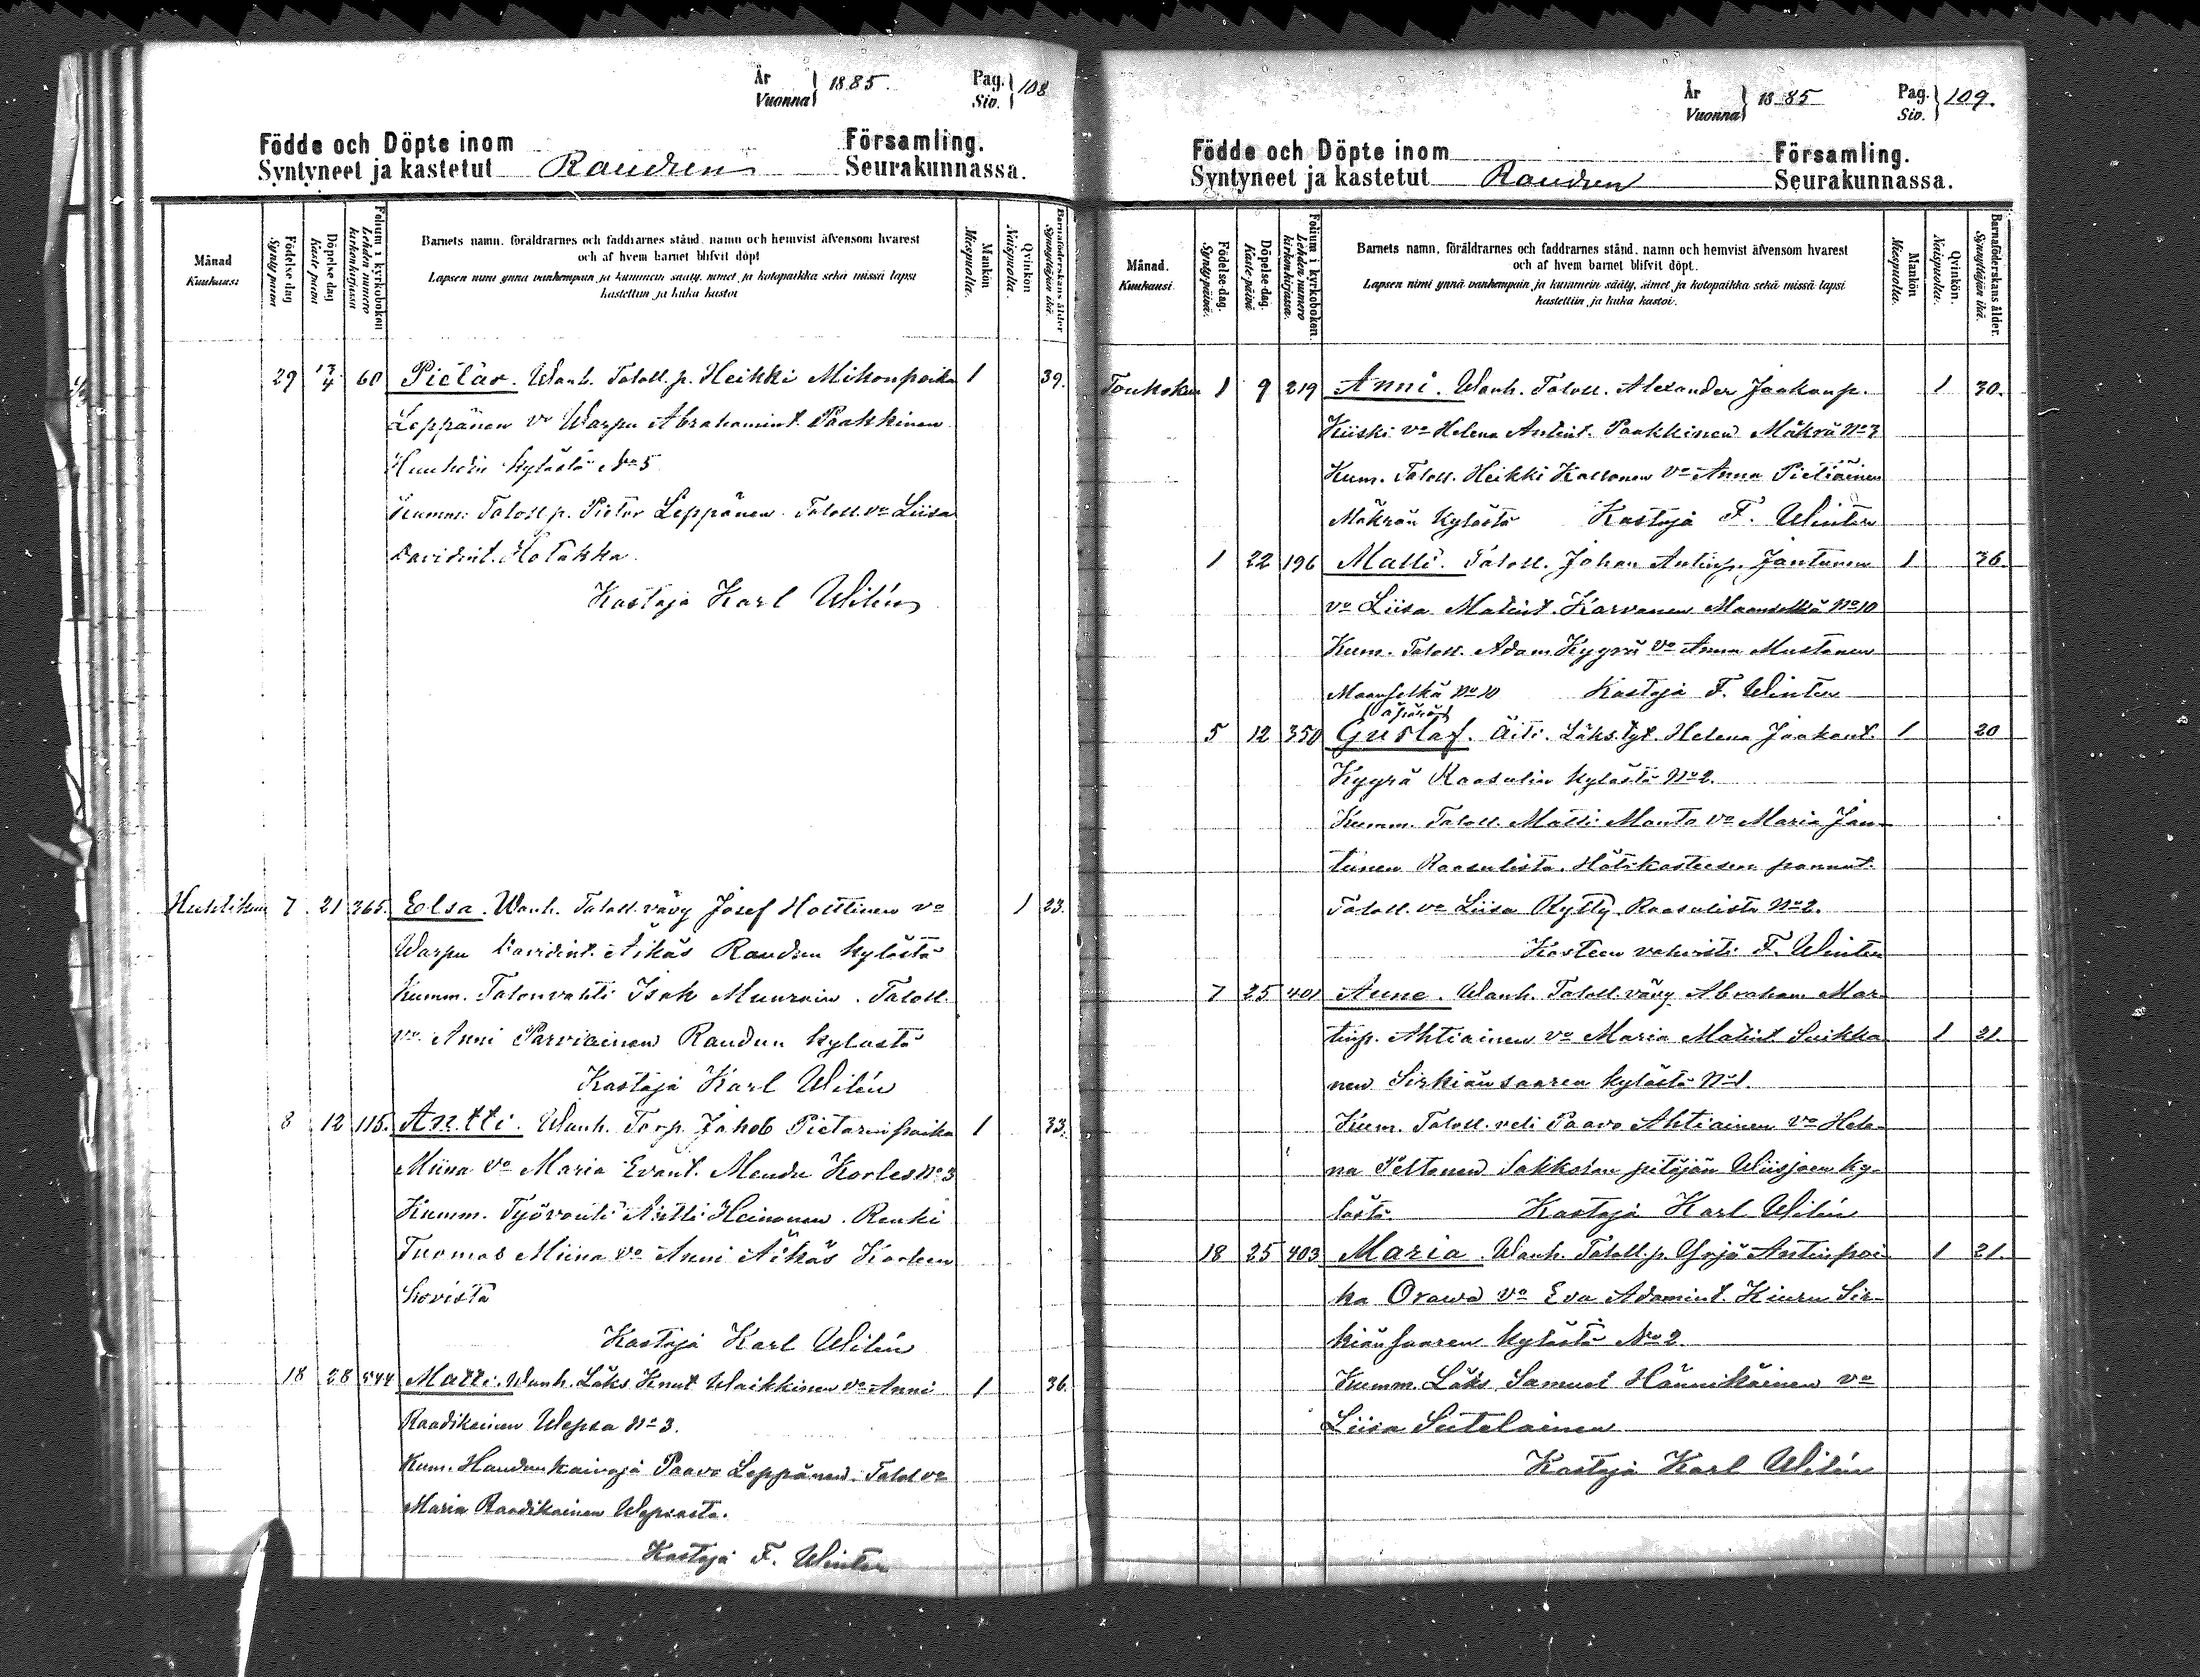 År
Vuonna } 1885.
Pag.
Siv. } 108
Födde och Döpte inom Församling.
Syntyneet ja kastetut Raudun Seurakunnassa.
Månad
Kuukausi
Födelse dag
Synty päivä
Döpelse dag
Kaste päivä
Folium i kyrkoboken
Lehden numero kirkonkirjassa
Barnets namn, föräldrarnes och faddrarnes stånd, namn och hemvist äfvensom hvarest
och af hvem barnet blifvit döpt
Lapsen nimi ynnä vanhempain ja kummein sääty, nimet ja kotopaikka sekä missä lapsi
kastettiin ja kuka kastoi
Mankön
Miespuolta.
Qvinkön
Naispuolta.
Barnaföderskans ålder
Synnyttäjän ikä.
29 13/4 60 Pietar. Wanh. Taloll. p. Heikki Mikonpoika 1 39.
Leppänen vo Warpu Abrahamint. Paakkinen
Huuhdin kylästä No 5
Kumm: Taloll p. Pietar Leppänen. Taloll. vo Liisa
Davidint. Hotakka.
Kastaja Karl Wilén
Huhtikuu 7 21 365. Elsa. Wanh. Taloll. vävy Josef Hottinen vo 1 23.
Warpu Davidint. Äikäs Raudun kylästä
Kumm. Talonvahti Isak Muurain. Taloll.
vo Anni Parviainen Raudun kylästä
Kastaja Karl Wilén
8 12 115. Antti. Wanh. Torp. Jakob Pietarinpoika 1 33.
Miina vo Maria Evant. Mendu Korles No 3
Kumm. Työvouti Antti Heinonen. Renki
Tuomas Miina vo Anni Äikäs Korleen
hovista
Kastaja Karl Wilén
18 28 544 Matti. Wanh. Läks. Knut Waikkinen vo Anni 1 36.
Raadikainen Wepsa No 3.
Kum. Haudan kaivaja Paavo Leppänen. Talol vo
Maria Raadikainen Wepsasta.
Kastaja F. Winter
År
Vuonna } 1885
Pag.
Siv. } 109.
Födde och Döpte inom Församling.
Syntyneet ja kastetut Raudun Seurakunnassa.
Månad.
Kuukausi
Födelse-dag.
Syntypäivä.
Döpelse-dag.
Kaste-päivä
Folium i kyrkoboken.
Lehden numero kirkonkirjassa.
Barnets namn, föräldrarnes och faddrarnes stånd, namn och hemvist äfvensom hvarest
och af hvem barnet blifvit döpt.
Lapsen nimi ynnä vanhempain ja kummein sääty, nimet ja kotopaikka sekä missä lapsi
kastettiin ja kuka kastoi.
Mankön
Miespuolta.
Qvinkön.
Naispuolta.
Barnaföderskans ålder.
Synnyttäjän ikä.
Toukokuu 1 9 219 Anni. Wanh. Taloll. Alexander Jaakonp. 1 30.
Kiiski vo Helena Antint. Paakkinen Mäkrä No 3
Kum. Taloll. Heikki Kassonen vo Anna Pietiäinen
Mäkrän kylästä Kastaja F. Winter
1 22 196 Matti. Taloll. Johan Antinp. Jantunen 1 36.
vo Liisa Matint. Karvanen Maanselkä No 10
Kum. Taloll. Adam Kyyrä vo Anna Mustonen
Maanselkä No 10 Kastaja F. Winter
(äpärä)
5 12 350 Gustaf. Äiti. Läks. tyt. Helena Jaakont. 1 20
Kyyrä Raasulin kylästä No 2.
Kumm. Taloll. Matti Manto vo Maria Jan-
tunen Raasulista. Hätäkasteesen pannut.
Taloll. vo Liisa Kytty Raasulista No 2.
Kasteen vahvisti F. Winter
7 25 401 Anne. Wanh. Taloll. vävy Abraham Mar-
tinp. Ahtiainen vo Maria Matint. Suikka- 1 21.
nen Sirkiänsaaren kylästä No 1.
Kum. Taloll. veli Paavo Ahtiainen vo Hele-
na Peltonen Sakkolan pitäjän Wiisjoen ky-
lästä. Kastaja Karl Wilén
18 25 403 Maria. Wanh. Taloll. p. Yrjö Antinpoi- 1 21.
ka Orawa vo Eva Adamint. Kiuru Sir-
kiänsaaren kylästä No 2
Kumm. Läks. Samuel Hännikäinen vo
Liisa Sutelainen
Kastaja Karl Wilén